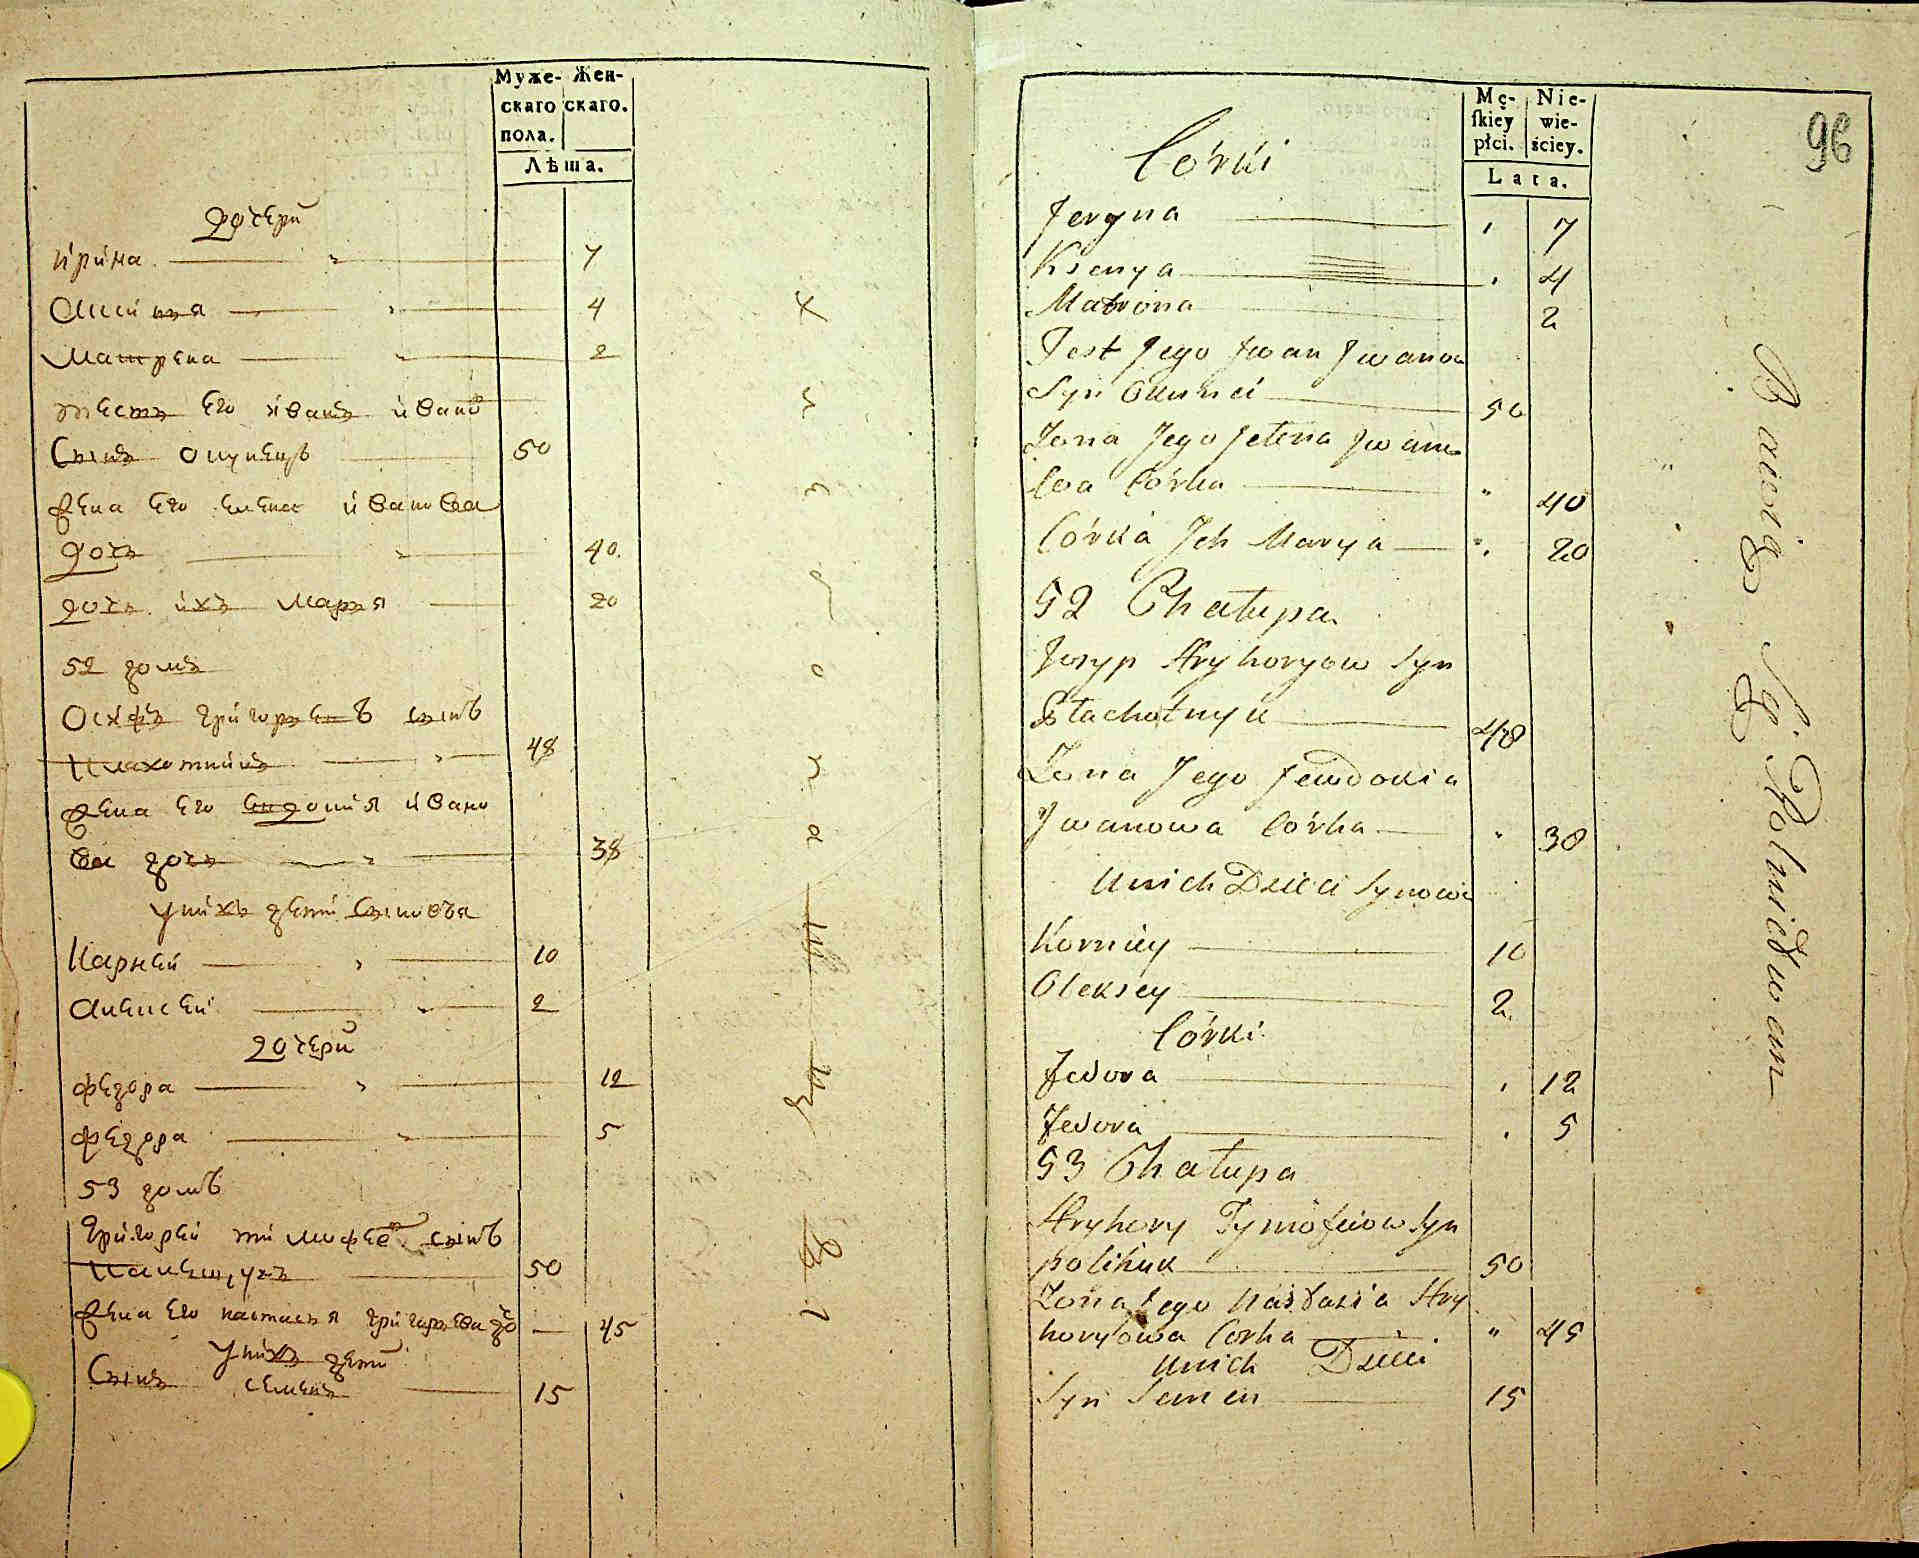 Муже-
скаго
пола.
Жен-
скаго.
Лѣта.
дочери
ирина 7
4
матрена 2
тесть его иванъ ивано
сынъ 50
жена его елена иванова
дочь 40.
дочь ихъ марья 20
52 домъ
Осипъ григорьевъ сынъ
плахотникъ 48
жена его евдокия ивано
ва дочь 38
у нихъ дети сыновья
Карней 10
алексей 2
дочери
федора 12
федора 5
53 домъ
григорей тимофее сынъ
50
жена его настасья григорьева до 45
у нихъ дети
Сынъ семенъ 15
96
Mę-
skiey
płci.
Nie-
wie-
ściey.
Lata.
Córki
Jeryna 7
Ksenya 4
Matrona 2
Test Jego Jwan Jwanow
Syn 50
Żona Jego Jelena Jwano
wa Córka 40
Córka Jch Marya 20
52 Chałupa
Josyp Hryhoryow Syn
Płachotnyk 48
Żona Jego Jewdokia
Jwanowa Córka 38
Unich Dzieci Synowie
Korniey 10
Oleksey 2
Córki
Fedora 12
Fedora 5
53 Chałupa
Hryhory Tymofeiow Syn
50
Żona Jego Nastasia Hry
horyiowa Corka 45
Unich Dzieci
Syn Semen 15